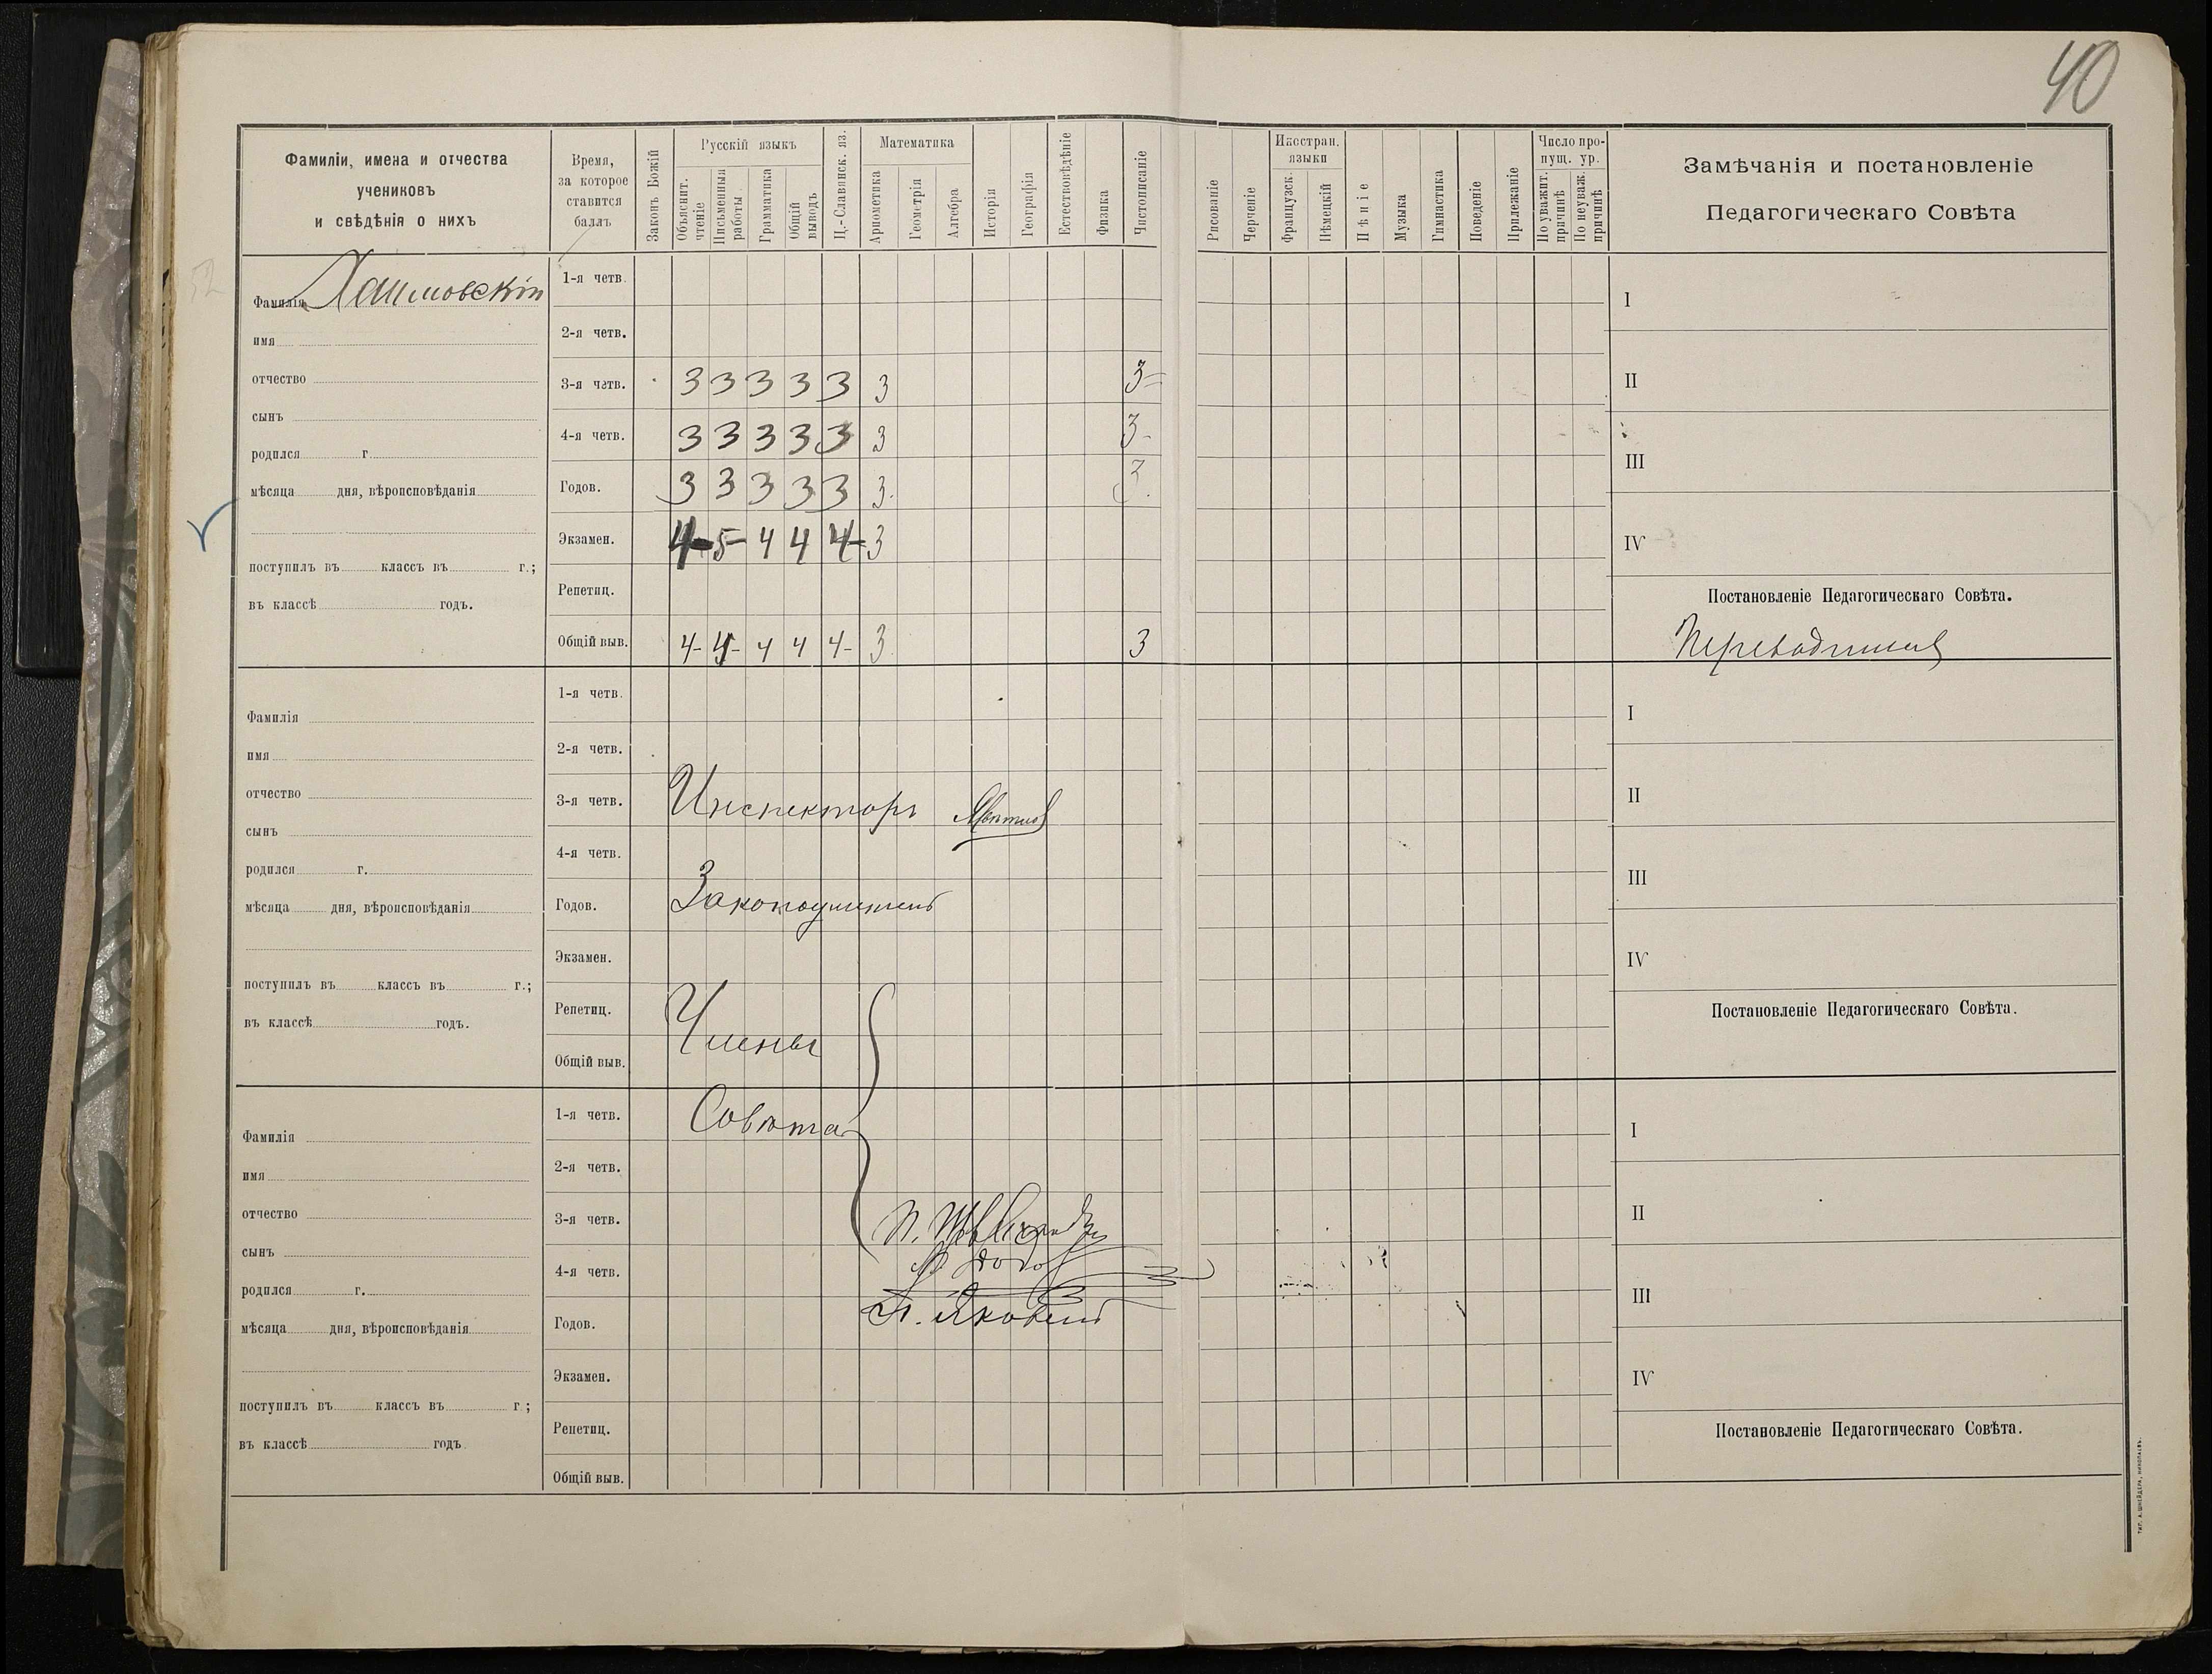 40
Фамиліи, имена и отчества
учениковъ
и свѣдѣнія о нихъ
Время,
за которое
ставится
баллъ
Законъ Божій
Русскій языкъ
Объяснит. чтеніе
Письменныя работы
Грамматика
Общій выводъ
Ц.-Славянск. яз.
Математика
Арифметика
Геометрія
Алгебра
Исторія
Географія
Естествовѣдѣніе
Физика
Чистописаніе
Рисованіе
Черченіе
Иностран. языки
Французск.
Нѣмецкій
Пѣніе
Музыка
Гимнастика
Поведеніе
Прилежаніе
Число пропущ. ур.
По уважит. причинѣ
По неуваж. причинѣ
Замѣчанія и постановленіе
Педагогическаго Совѣта
52
Фамилія Хаимовскій
имя
отчество
сынъ
родился г.
мѣсяца дня, вѣроисповѣданія
поступилъ въ классъ въ г.;
въ классѣ годъ.
1-я четв.
2-я четв.
3-я четв. 3 3 3 3 3 3 3-
4-я четв. 3 3 3 3 3 3 3-
Годов. 3 3 3 3 3 3. 3.
Экзамен. 4- 5- 4 4 4- 3
Репетиц.
Общій выв. 4- 4- 4 4 4- 3. 3
I
II
III
IV
Постановленіе Педагогическаго Совѣта.
Фамилія
имя
отчество
сынъ
родился г.
мѣсяца дня, вѣроисповѣданія
поступилъ въ классъ въ г.;
въ классѣ годъ.
1-я четв.
2-я четв.
3-я четв. Инспекторъ
4-я четв.
Годов. Законоучитель
Экзамен.
Репетиц. Члены
Общій выв.
I
II
III
IV
Постановленіе Педагогическаго Совѣта.
Фамилія
имя
отчество
сынъ
родился г.
мѣсяца дня, вѣроисповѣданія
поступилъ въ классъ въ г.;
въ классѣ годъ
1-я четв. Совѣта
2-я четв.
3-я четв.
4-я четв.
Годов.
Экзамен.
Репетиц.
Общій выв.
I
II
III
IV
Постановленіе Педагогическаго Совѣта.
ТИП. А. ШНЕЙДЕРА, НИКОЛАЕВЪ.